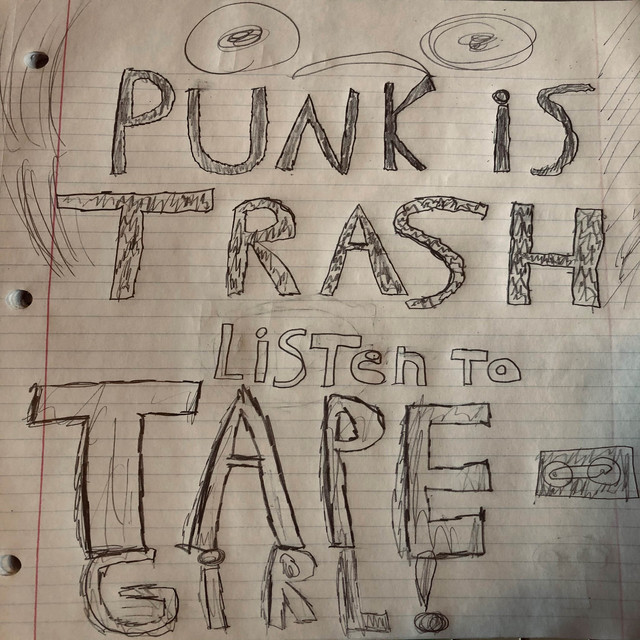 PUNK iS
TRASH
LiSTen To
TAPE
GiRL!